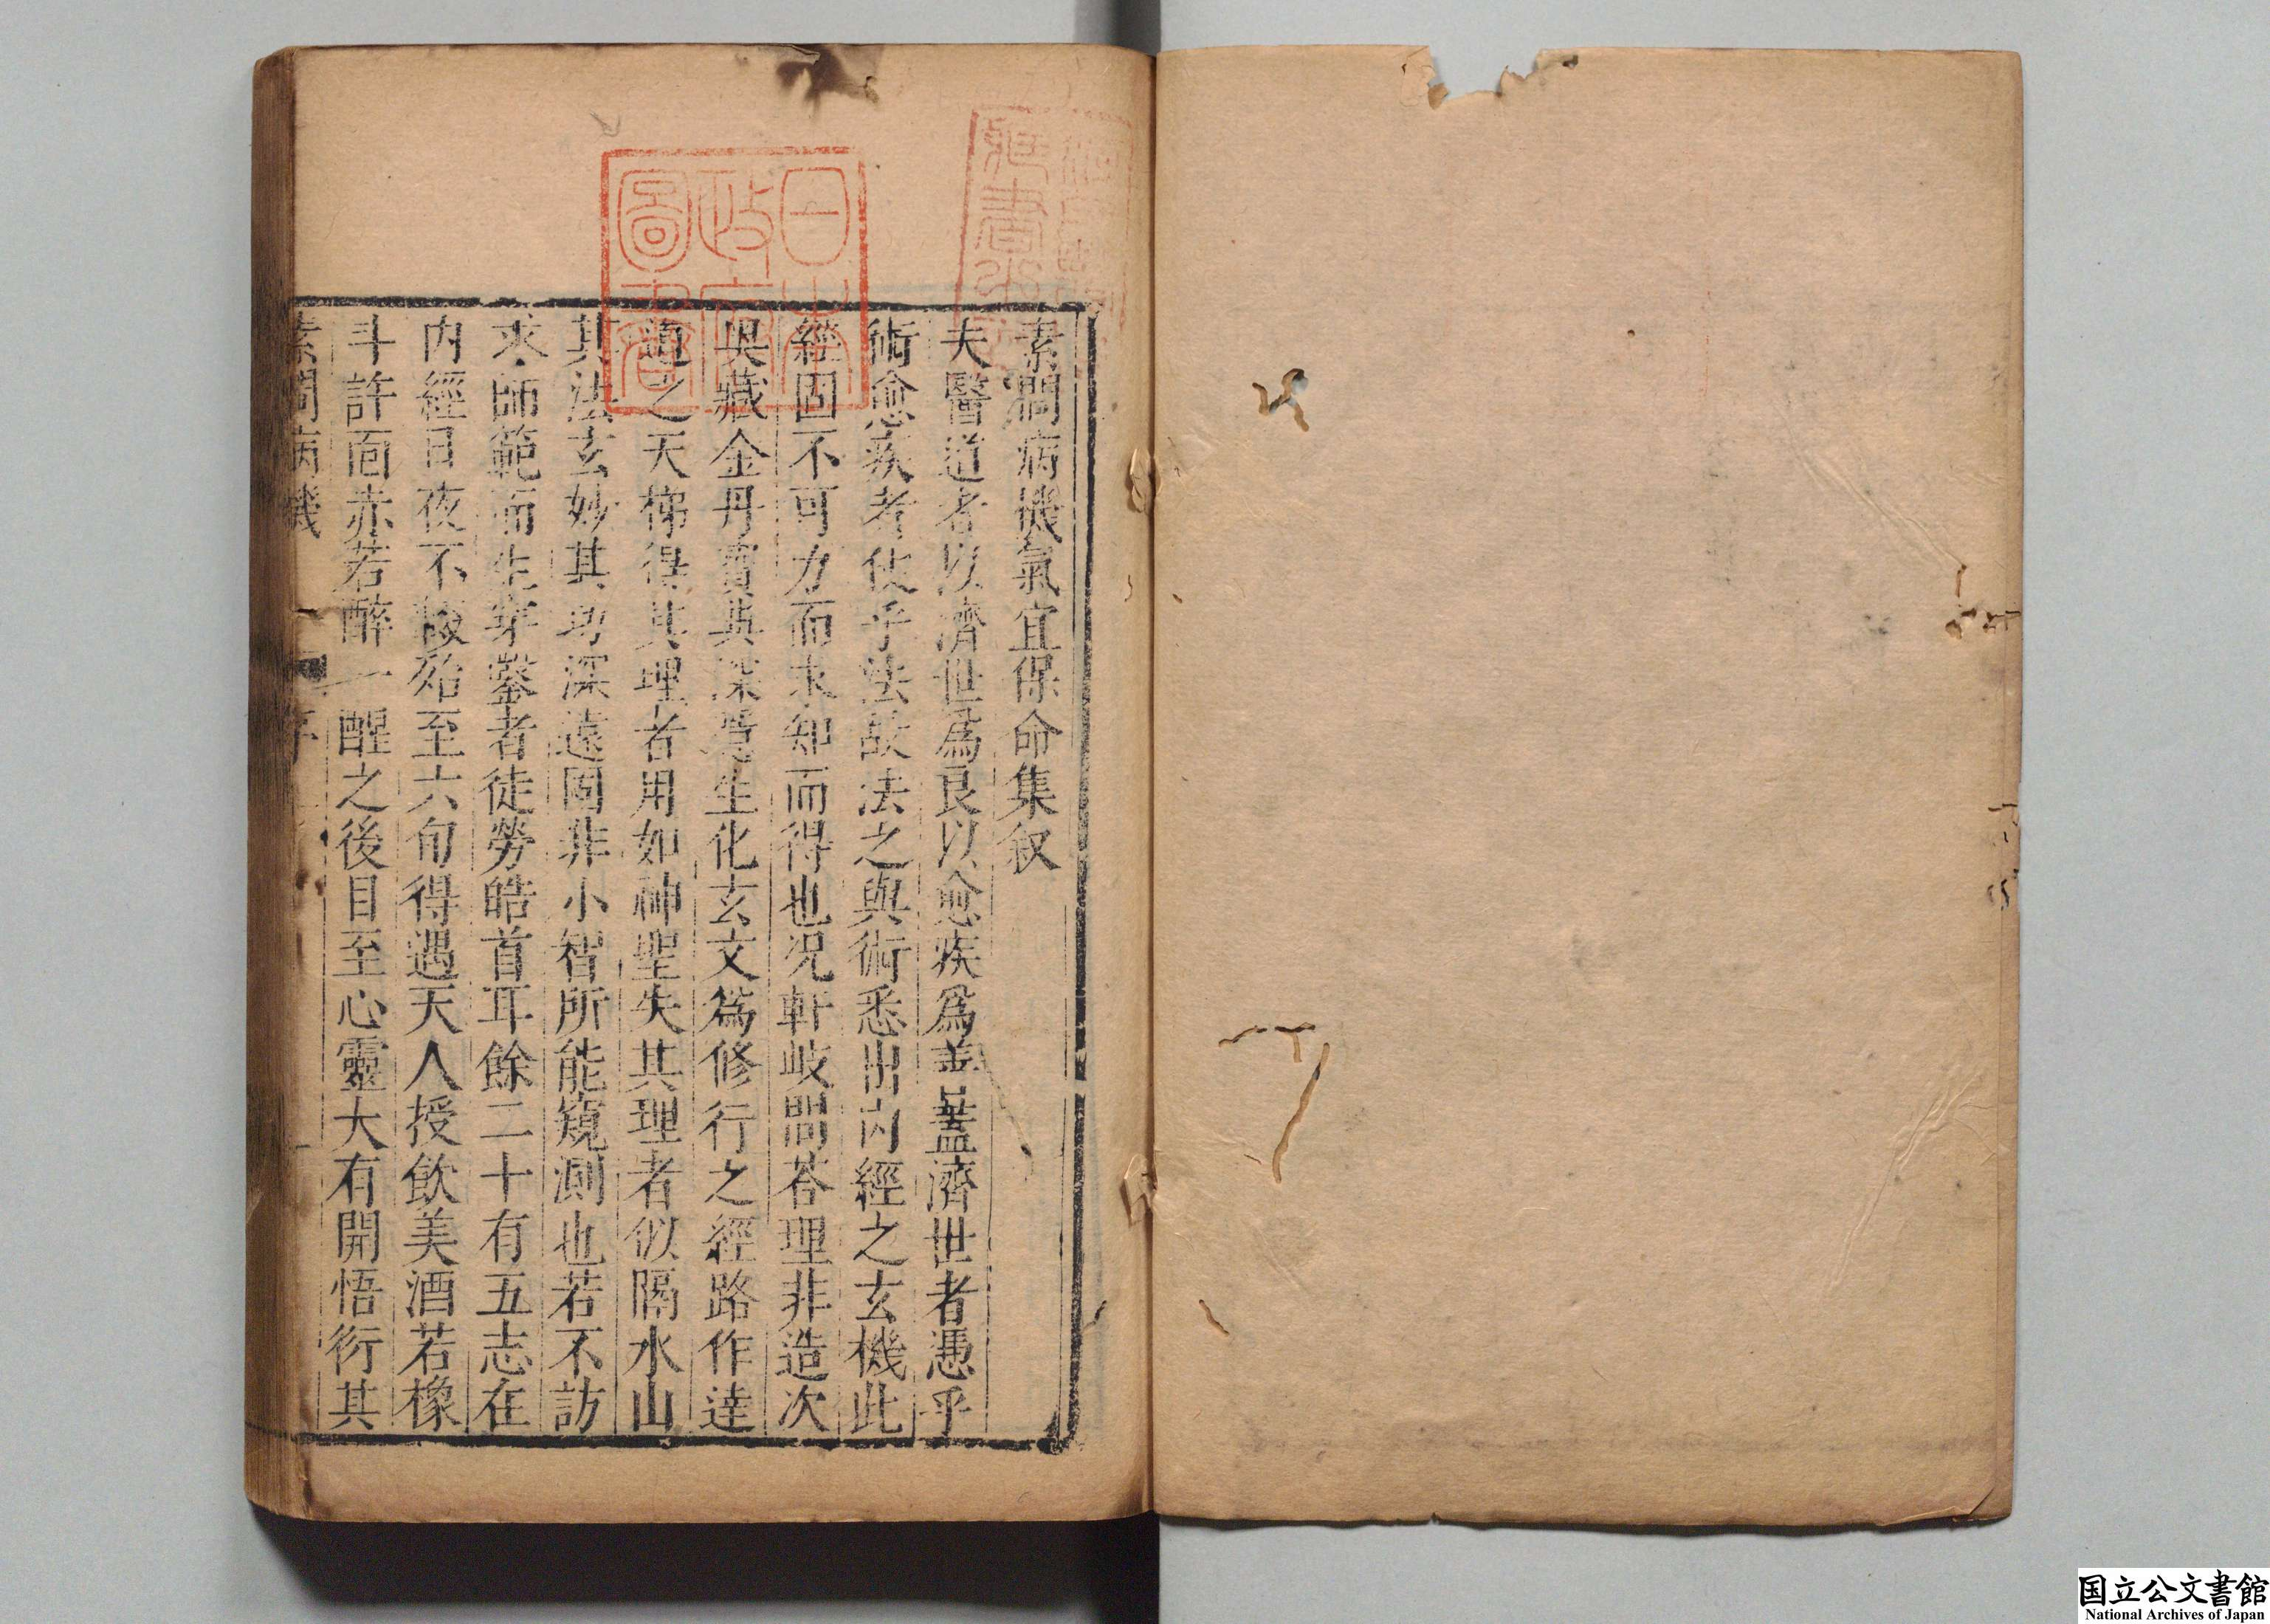 素問病機氣宜保命集叙
夫醫道者以濟世爲良以愈疾爲善蓋濟世者憑乎
術愈疾者仗乎法故法之與術悉出內經之玄機此
經固不可力而求知而得也况軒岐問荅理非造次
奥藏金丹寳典深隱生化玄文爲修行之經路作達
道之天梯得其理者用如神聖失其理者似隔水山
其法玄妙其功深遠固非小智所能窺測也若不訪
求師範而生穿鑿者徒勞皓首耳餘二十有五志在
內經日夜不輟殆至六旬得遇天人授飲美酒若橡
斗許面赤若醉一醒之後目至心靈大有開悟衍其
素問病機
序
日本
政府
圖書
國立公文書館
National Archives of Japan